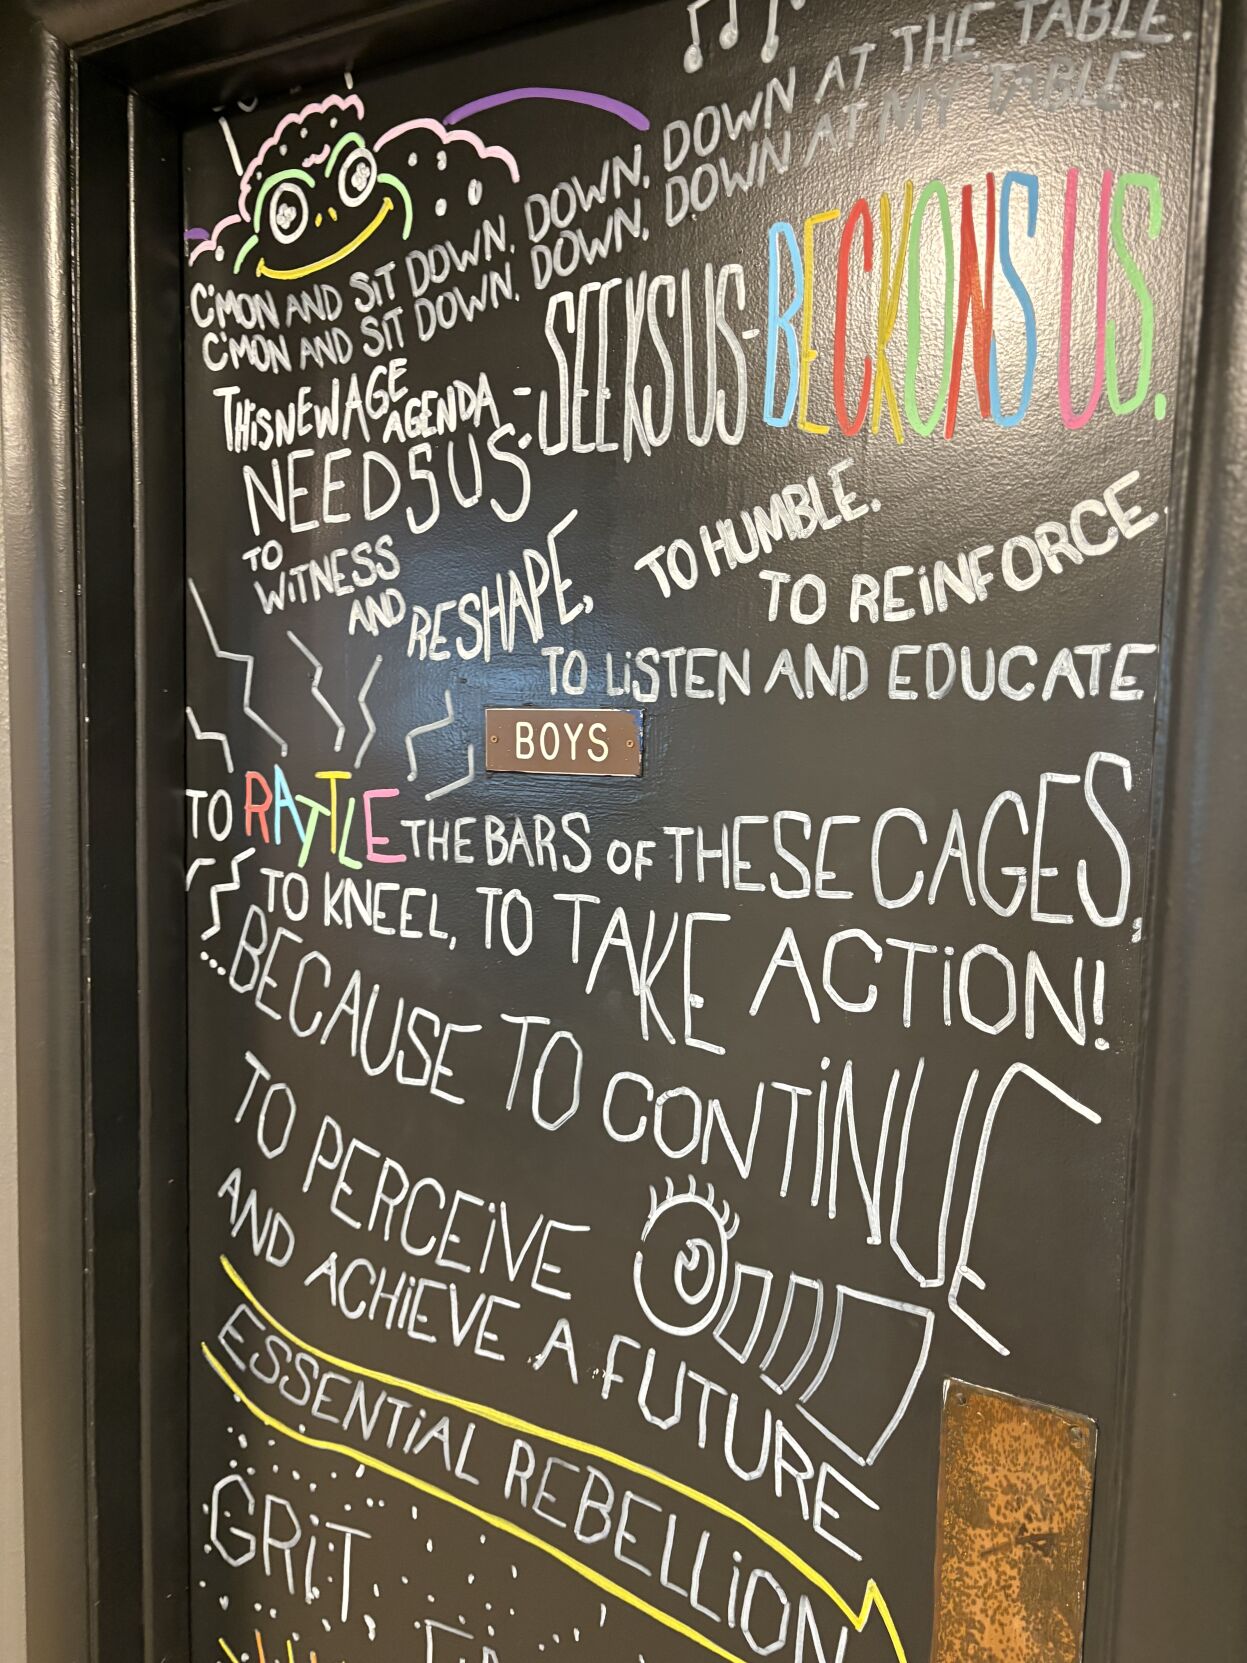 C'MON AND SIT DOWN, DOWN, DOWN, DOWN AT THE TABLE.
C'MON AND SIT DOWN, DOWN, DOWN, DOWN AT MY TABLE...
THIS NEW AGE AGENDA - SEEKS US - BECKONS US.
NEEDS US.
TO WITNESS AND RESHAPE,
TO HUMBLE.
TO REINFORCE.
TO LISTEN AND EDUCATE
BOYS
TO RATTLE THE BARS OF THESE CAGES,
TO KNEEL, TO TAKE ACTION!
...BECAUSE TO CONTINUE
TO PERCEIVE
AND ACHIEVE A FUTURE
ESSENTIAL REBELLION
GRIT,